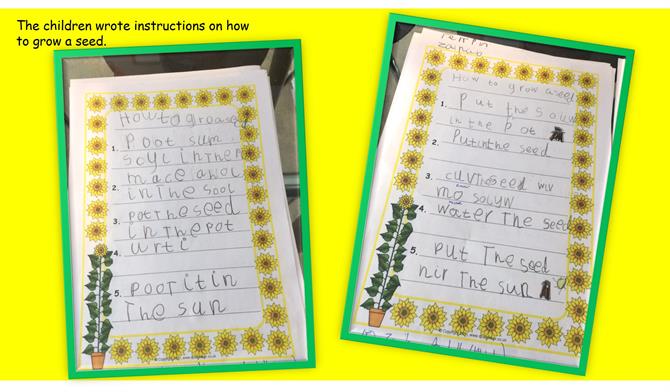 The children wrote instructions on how
to grow a seed.
How to groa seed
1. Poot sum
soyl in Then
2. mace a hol
in The sool
3. pot The seed
in The pot
4. wrti
5. Poot it in
The sun
How to grow a seed
1. Put the souw
in the pot
2. Put in the seed
3. cuv The seed wiv
mo souyw
4. water The seed
5. Put The seed
nir The sun